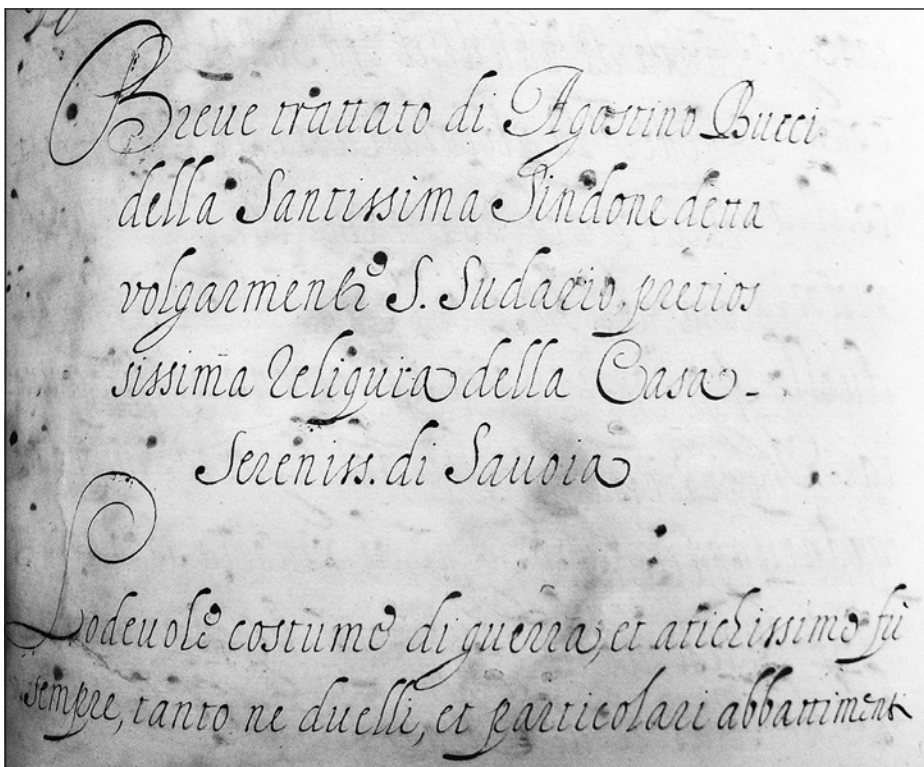 Breue trattato di Agostino Bucci
della Santissima Sindone detta
volgarmente S. Sudario, pretios
sissima Reliquia della Casa
Sereniss. di Sauoia
Lodeuole costume di guerra, et atichissimo fù
sempre, tanto ne duelli, et particolari abbattiment